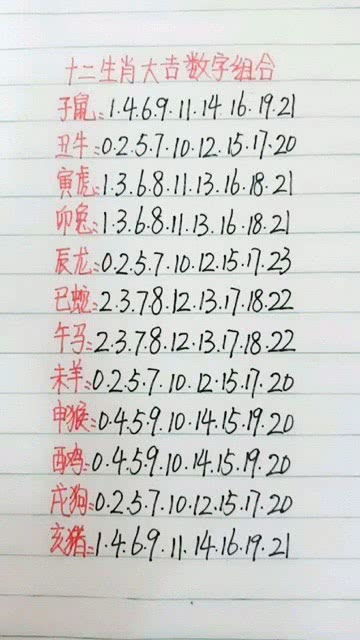 十二生肖大吉数字组合
子鼠:1.4.6.9.11.14.16.19.21
丑牛:0.2.5.7.10.12.15.17.20
寅虎:1.3.6.8.11.13.16.18.21
卯兔:1.3.6.8.11.13.16.18.21
辰龙:0.2.5.7.10.12.15.17.23
巳蛇:2.3.7.8.12.13.17.18.22
午马:2.3.7.8.12.13.17.18.22
未羊:0.2.5.7.10.12.15.17.20
申猴:0.4.5.9.10.14.15.19.20
酉鸡:0.4.5.9.10.14.15.19.20
戌狗:0.2.5.7.10.12.15.17.20
亥猪:1.4.6.9.11.14.16.19.21